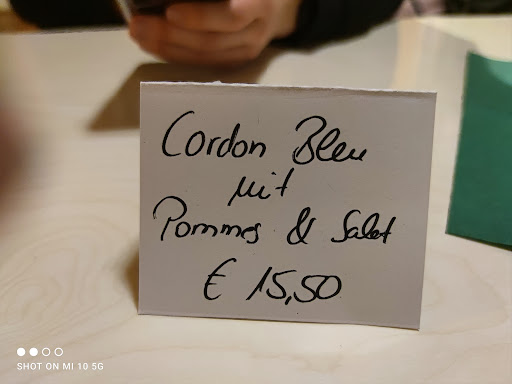 Cordon Bleu
mit
Pommes & Salat
€ 15,50
SHOT ON MI 10 5G